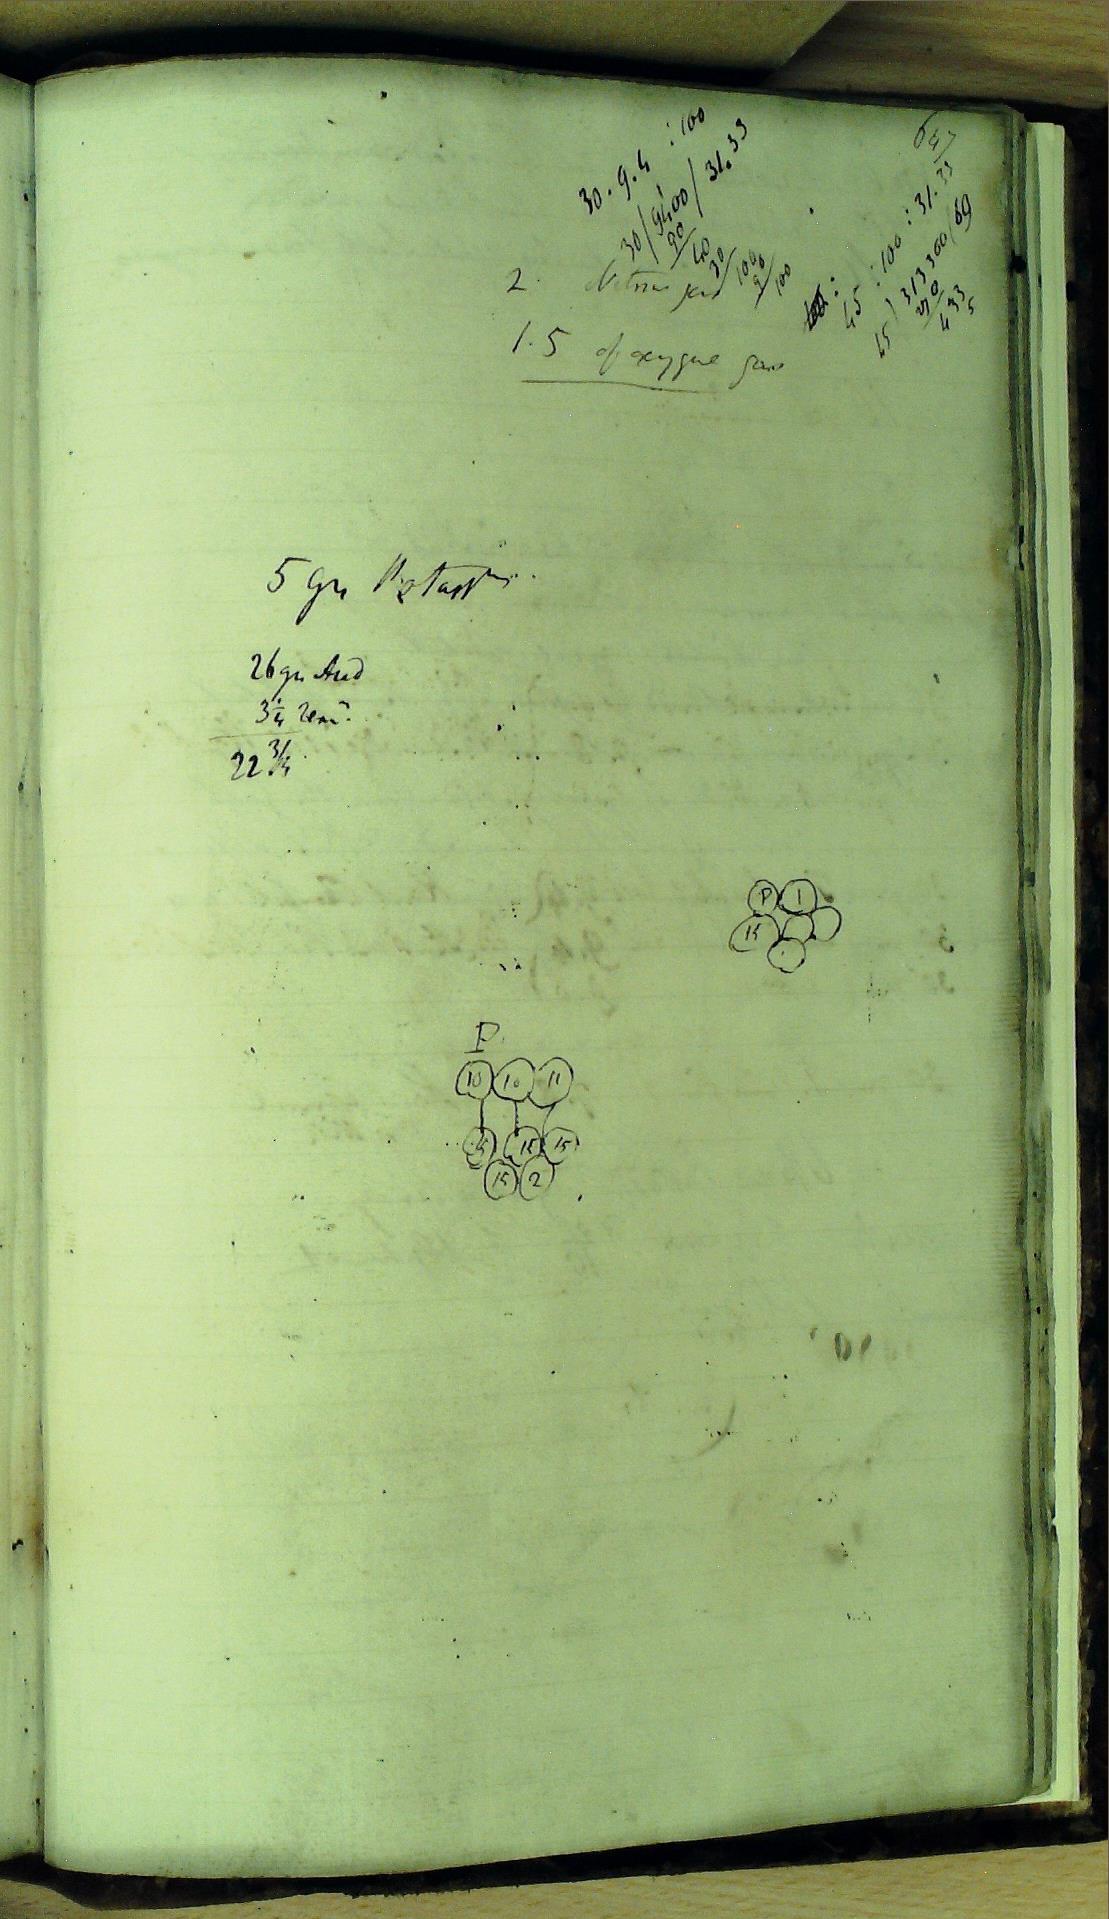 647
30 . 9.4 : 100
30/9400/31.33
90
40
30
100
90
100
: 45 : 100 : 31.33
45)313300/69
270
433
5
2. Nitrous gas
1.5 of oxygene gas
5 grs Potassm.
26 grs Acid
3 1/4 Rem.
22 3/4
P 1
15
P
10 10 11
15 15 15
15 2